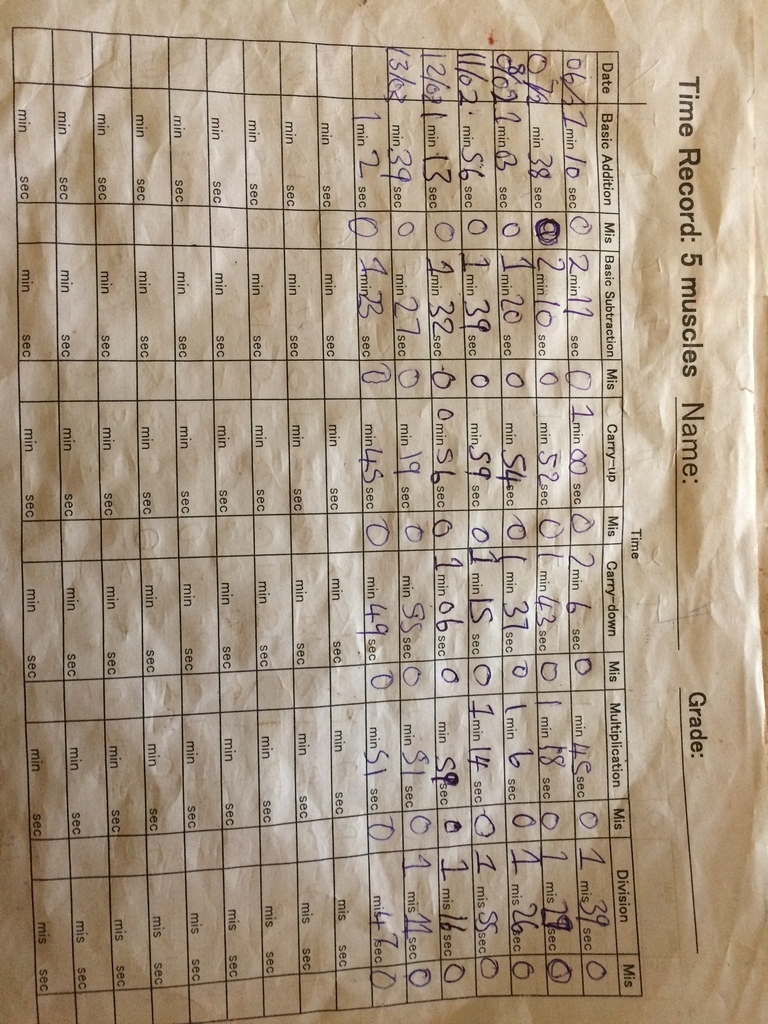 Time Record: 5 muscles Name: Grade:
Time
Date Basic Addition Mis Basic Subtraction Mis Carry-up Mis Carry-down Mis Multiplication Mis Division Mis
1 min 10 sec 0 2 min 11 sec 0 1 min 00 sec 0 2 min 6 sec 0 min 45 sec 0 1 mis 39 sec 0
min 38 sec 0 2 min 10 sec 0 min 52 sec 0 1 min 43 sec 0 1 min 18 sec 0 1 mis sec 0
min sec 0 1 min 20 sec 0 min 54 sec 0 1 min 37 sec 0 1 min 6 sec 0 1 mis 26 sec 0
11/02 min 56 sec 0 1 min 39 sec 0 min 59 sec 0 1 min 15 sec 0 1 min 14 sec 0 1 mis 55 sec 0
12/02 1 min 13 sec 0 1 min 32 sec 0 0 min 56 sec 0 1 min 06 sec 0 min 59 sec 0 1 mis 16 sec 0
13/02 min 39 sec 0 min 27 sec 0 min 19 sec 0 min 55 sec 0 min 51 sec 0 1 mis 11 sec 0
1 min 2 sec 0 1 min 23 sec 0 min 45 sec 0 min 49 sec 0 min 51 sec 0 mis 47 sec 0
min sec min sec min sec min sec min sec mis sec
min sec min sec min sec min sec min sec mis sec
min sec min sec min sec min sec min sec mis sec
min sec min sec min sec min sec min sec mis sec
min sec min sec min sec min sec min sec mis sec
min sec min sec min sec min sec min sec mis sec
min sec min sec min sec min sec min sec mis sec
min sec min sec min sec min sec min sec mis sec
min sec min sec min sec min sec min sec mis sec